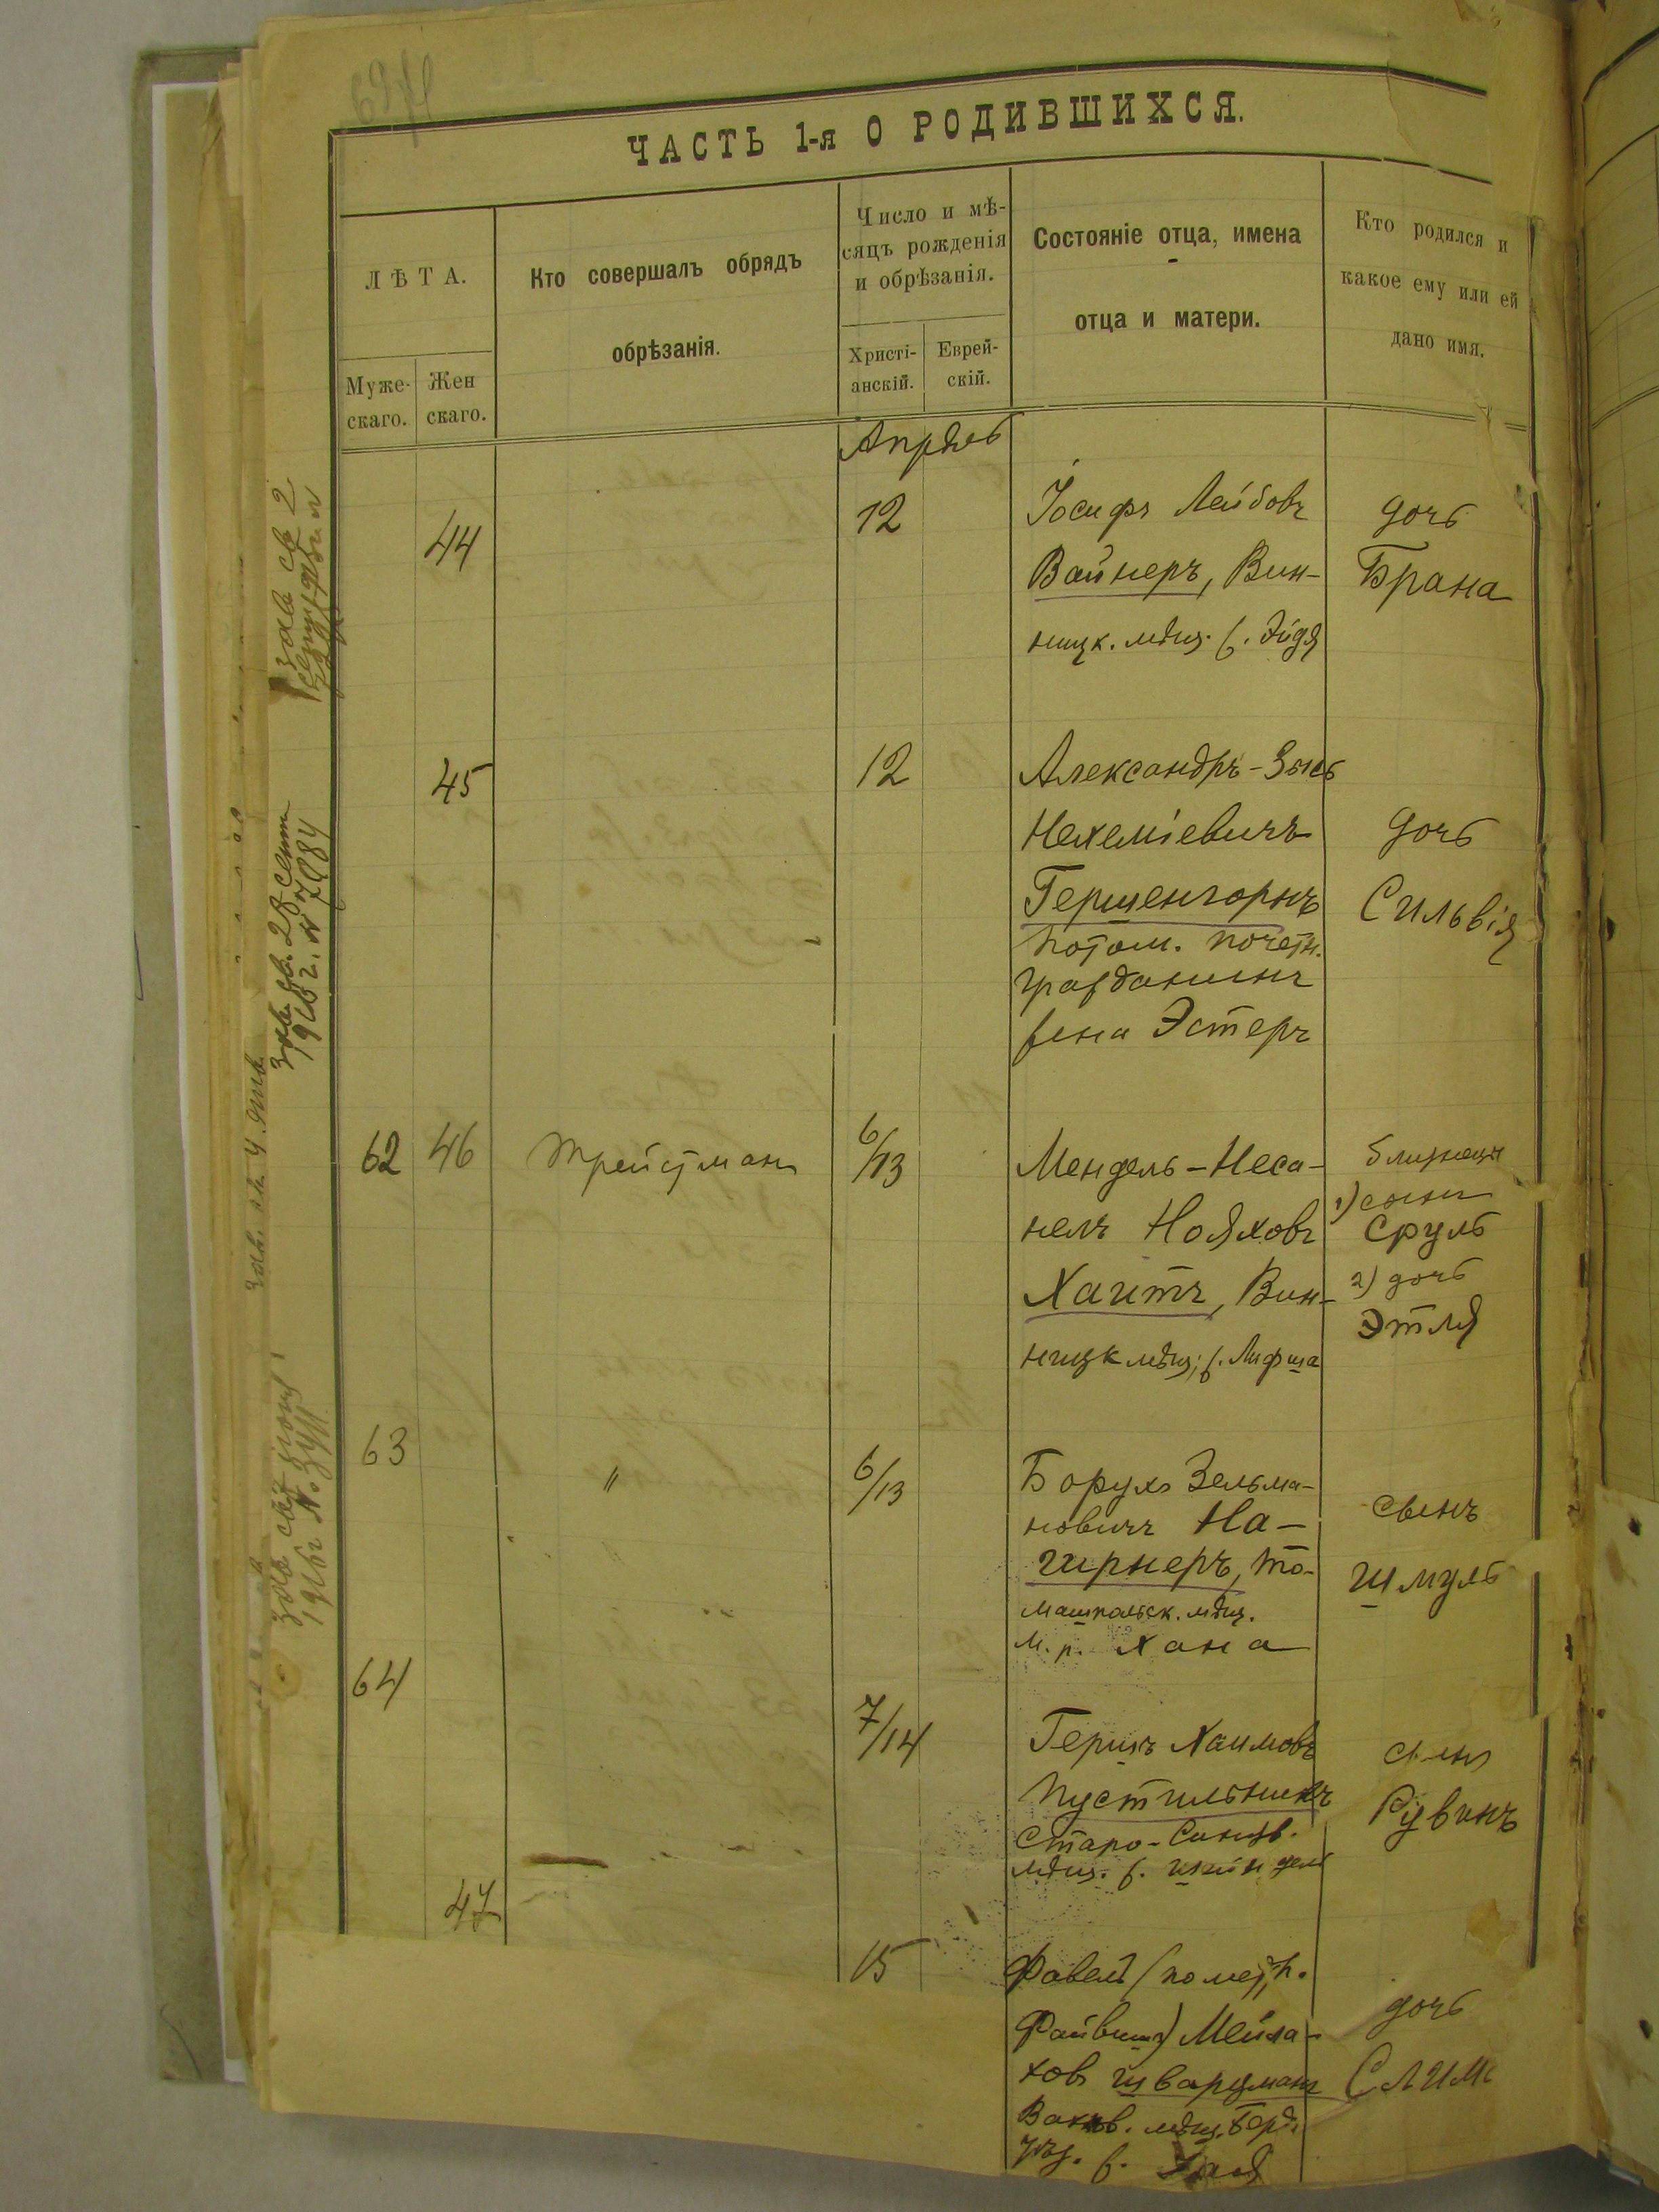 ЧАСТЬ 1-я О РОДИВШИХСЯ.
ЛѢТА.
Муже-
скаго.
Жен
скаго.
Кто совершалъ обрядъ
обрѣзанія.
Число и мѣ-
сяцъ рожденія
и обрѣзанія.
Христі-
анскій.
Еврей-
скій.
Состояніе отца, имена
отца и матери.
Кто родился и
какое ему или ей
дано имя.
Апрѣль
44
12
Іосифъ Лейбовъ
Вайнеръ, Вин-
ницк. мѣщ. ж. Эйдя
дочь
Брана
45
12
Александръ-Зысь
Нехеміевичъ
Гершенгорнъ
потом. почетн.
гражданинъ
жена Эстеръ
дочь
Сильвія
62 46
Трейстманъ
6/13
Мендель-Неса-
нелъ Нояховъ
Хаитъ, Вин-
ницк мѣщ; ж. Лифша
близнецы
1) сынъ
Сруль
2) дочь
Этля
63
"
6/13
Борухъ Зельма-
новичъ На-
гирнеръ, То-
машпольск. мѣщ.
Хана
сынъ
Шмуль
64
7/14
Гершъ Хаимовъ
Пустильникъ
Старо-Синяв.
мѣщ. ж. Шейндель
сынъ
Рувинъ
47
15
Фавель (по метр.
Файвишъ) Мейла-
ховъ Шварцманъ
мѣщ. Берд.
ж. Хая
дочь